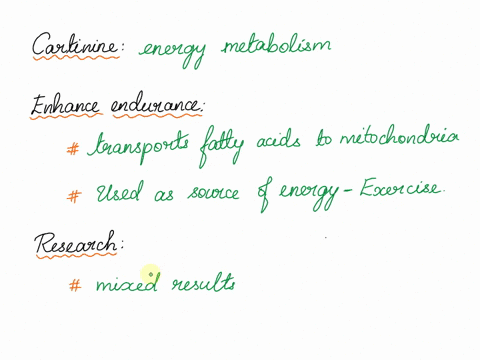 Cartinine: energy metabolism
Enhance endurance:
# transports fatty acids to mitochondria
# Used as source of energy - Exercise.
Research:
# mixed results